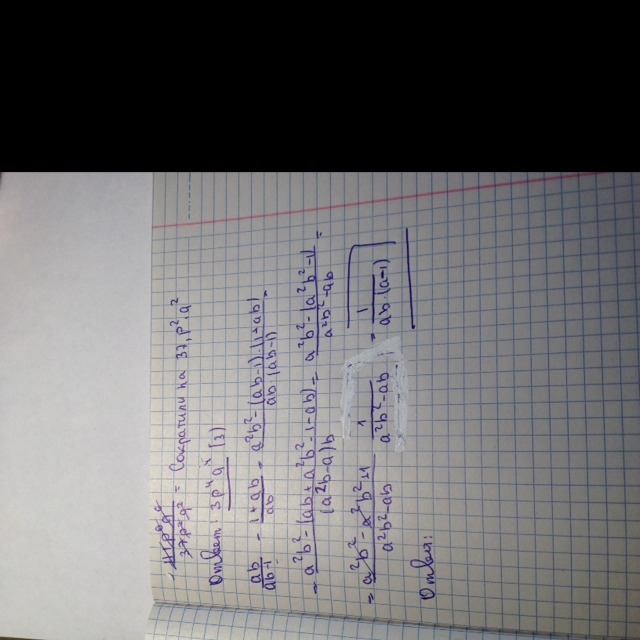 = Сократили на 31, p² q²
Ответ: 3p⁴q⁴ (3)
ab/(ab-1) - (1+ab)/ab = (a²b² - (ab-1)(1+ab))/(ab(ab-1)) =
= (a²b² - (ab + a²b² - 1 - ab))/((a²b - a)b) = (a²b² - (a²b² - 1))/(a²b² - ab) =
= (a²b² - a²b² + 1)/(a²b² - ab) = 1/(a²b² - ab) = 1/(ab·(a-1))
Ответ: